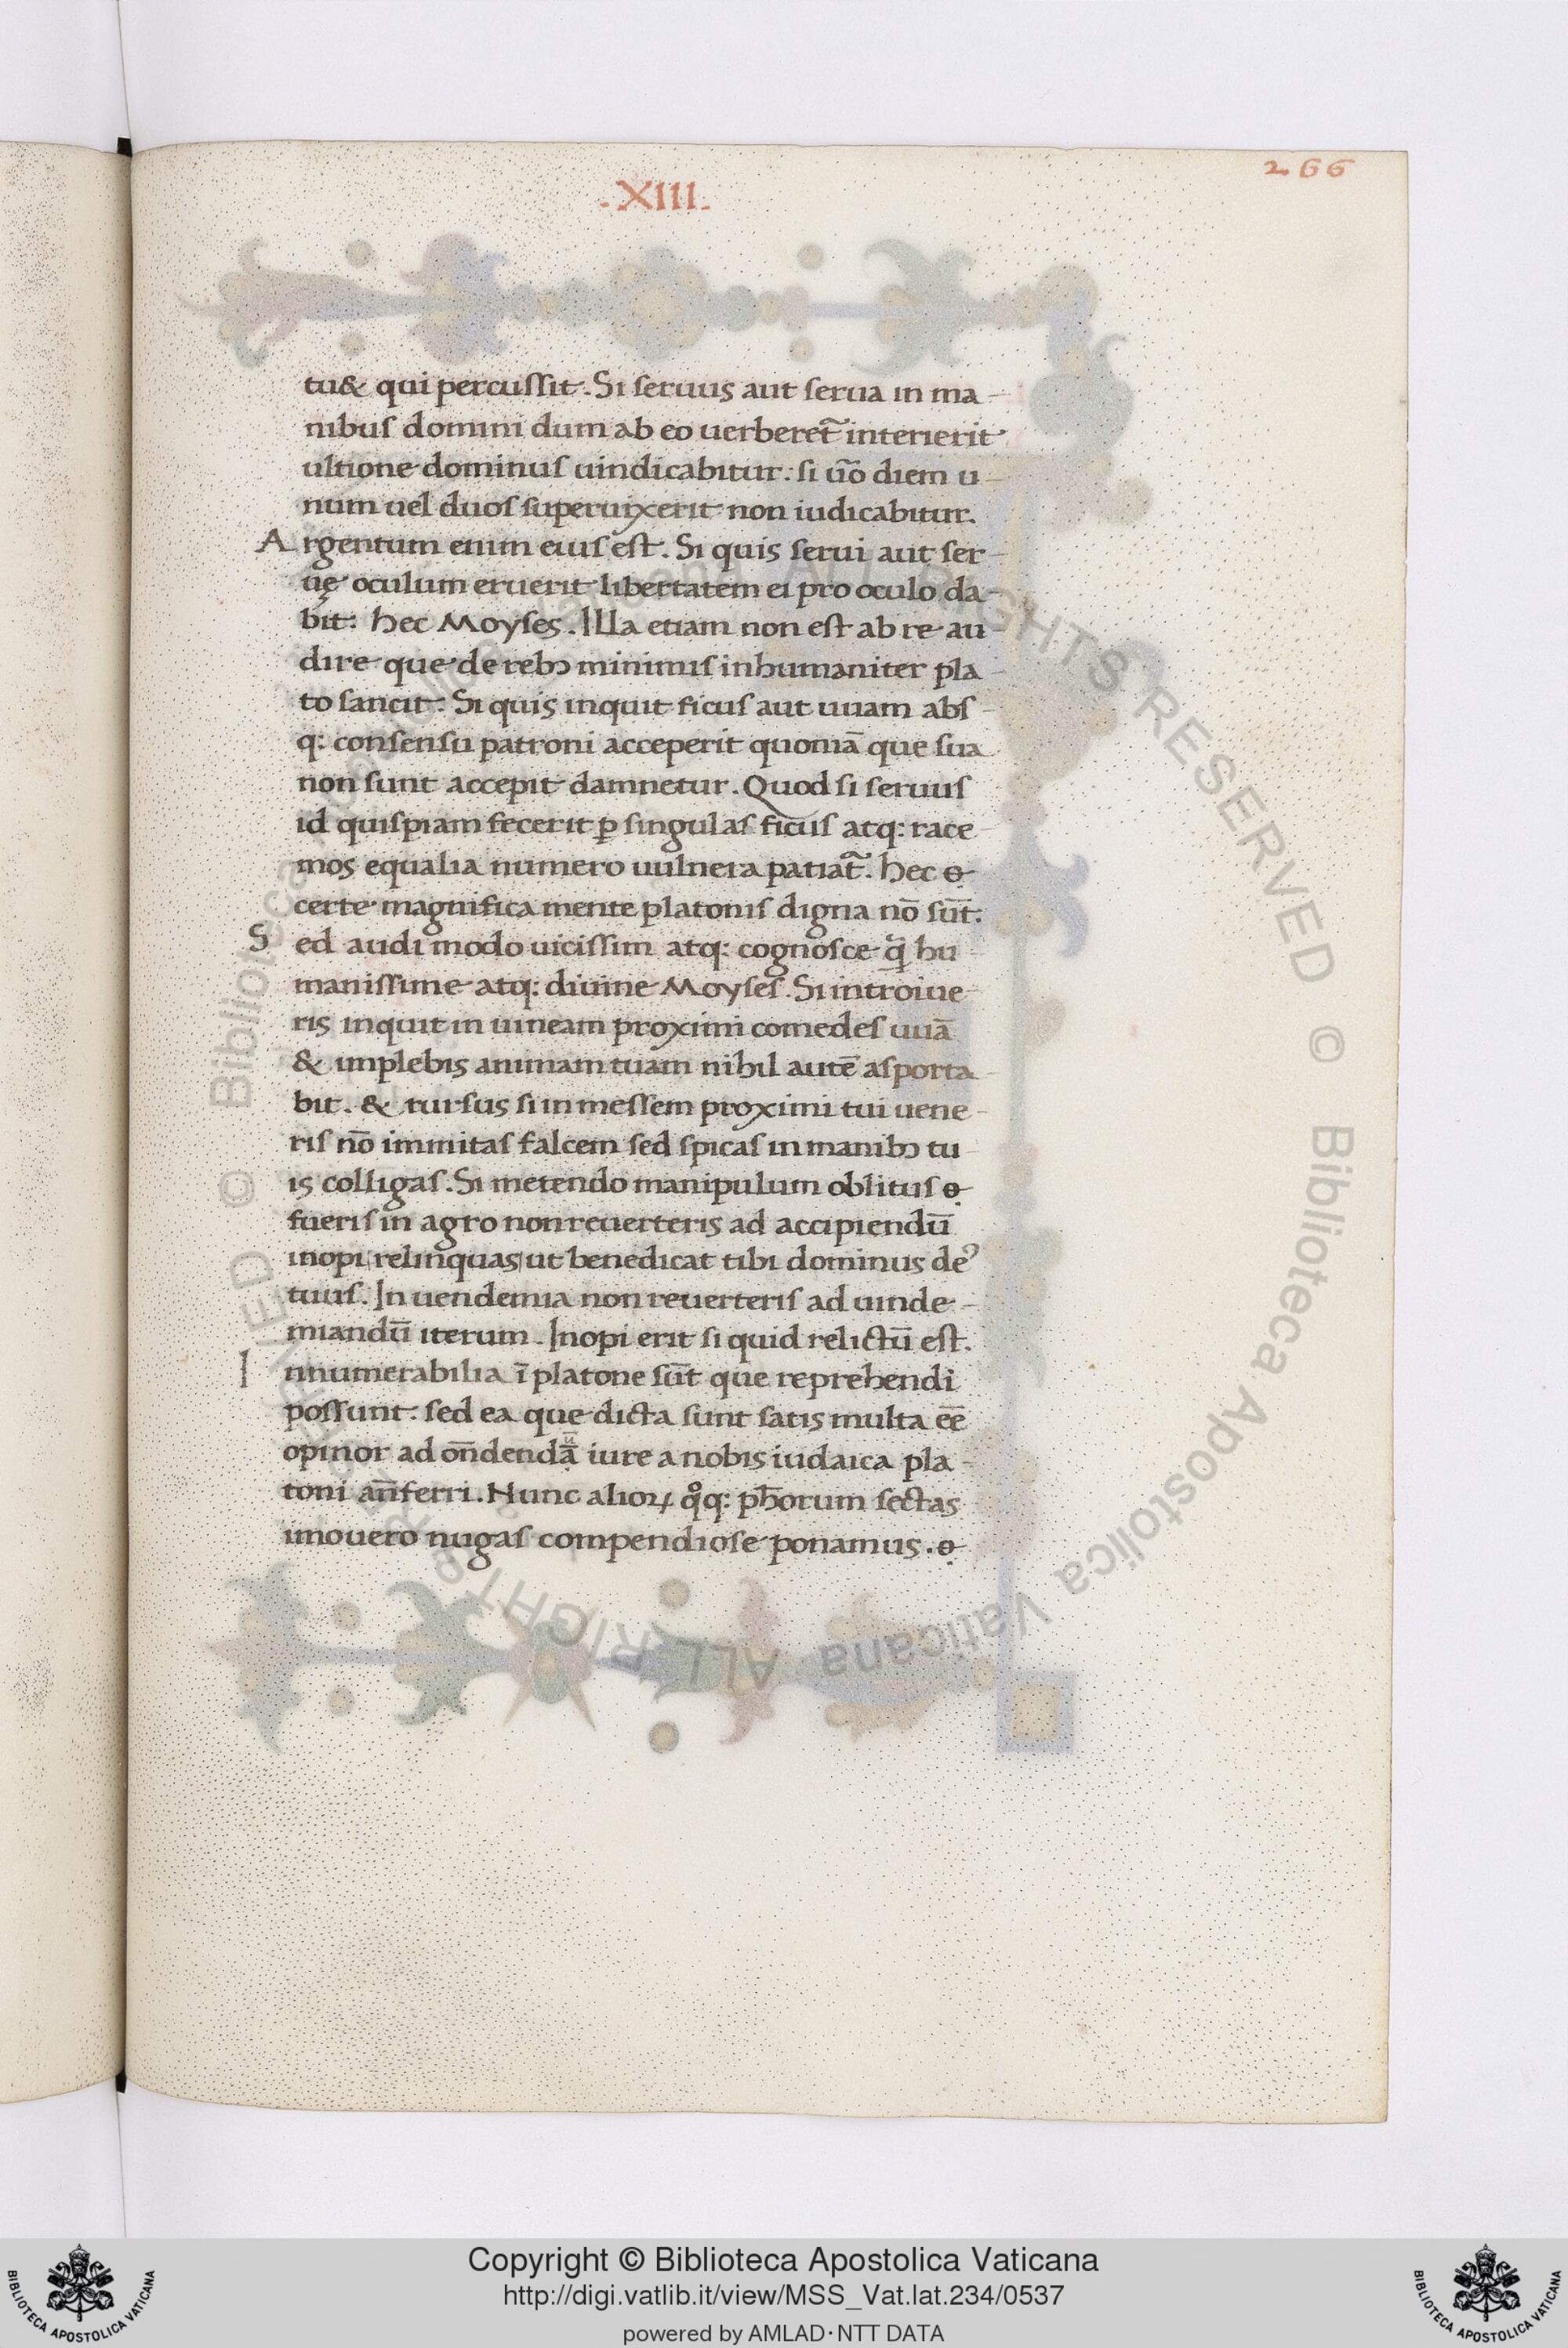 266
.XIII.
tu& qui percussit. Si seruus aut serua in ma-
nibus domini dum ab eo uerberet̃ interierit
ultione dominus uindicabitur: si uõ diem u-
num uel duos superuixerit non iudicabitur.
Argentum enim eius est. Si quis serui aut ser-
uę oculum eruerit libertatem ei pro oculo da-
bit: hec Moyses. Illa etiam non est ab re au-
dire que de rebꝯ minimis inhumaniter pla-
to sancit: Si quis inquit ficus aut uuam abs-
q: consensu patroni acceperit quoniã que sua
non sunt accepit damnetur. Quod si seruus
id quispiam fecerit ꝑ singulas ficus atq: race-
mos equalia numero uulnera patiat̃. hec
certe magnifica mente platonis digna nō sūt:
Sed audi modo uicissim atq: cognosce q̃ hu-
manissime atq: diuine Moyses. Si introiue-
ris inquit in uineam proximi comedes uuã
& implebis animam tuam nihil autē asporta-
bit. & rursus si in messem proximi tui uene-
ris nō immitas falcem sed spicas in manibꝯ tu-
is colligas. Si metendo manipulum oblitus
fueris in agro non reuerteris ad accipiendū
inopi relinquas ut benedicat tibi dominus deꝰ
tuus. In uendemia non reuerteris ad uinde-
miandū iterum. Inopi erit si quid relictū est.
Innumerabilia ī platone sūt que reprehendi
possunt: sed ea que dicta sunt satis multa eē
opinor ad on̄dendā iure a nobis iudaica pla-
toni an̄ferri. Nunc alioꝝ qͦq: ph̄orum sectas
imouero nugas compendiose ponamus.
© Biblioteca Apostolica Vaticana ALL RIGHTS RESERVED © Biblioteca Apostolica Vaticana ALL RIGHTS RESERVED
Copyright © Biblioteca Apostolica Vaticana
http://digi.vatlib.it/view/MSS_Vat.lat.234/0537
powered by AMLAD·NTT DATA
BIBLIOTECA APOSTOLICA VATICANA
BIBLIOTECA APOSTOLICA VATICANA